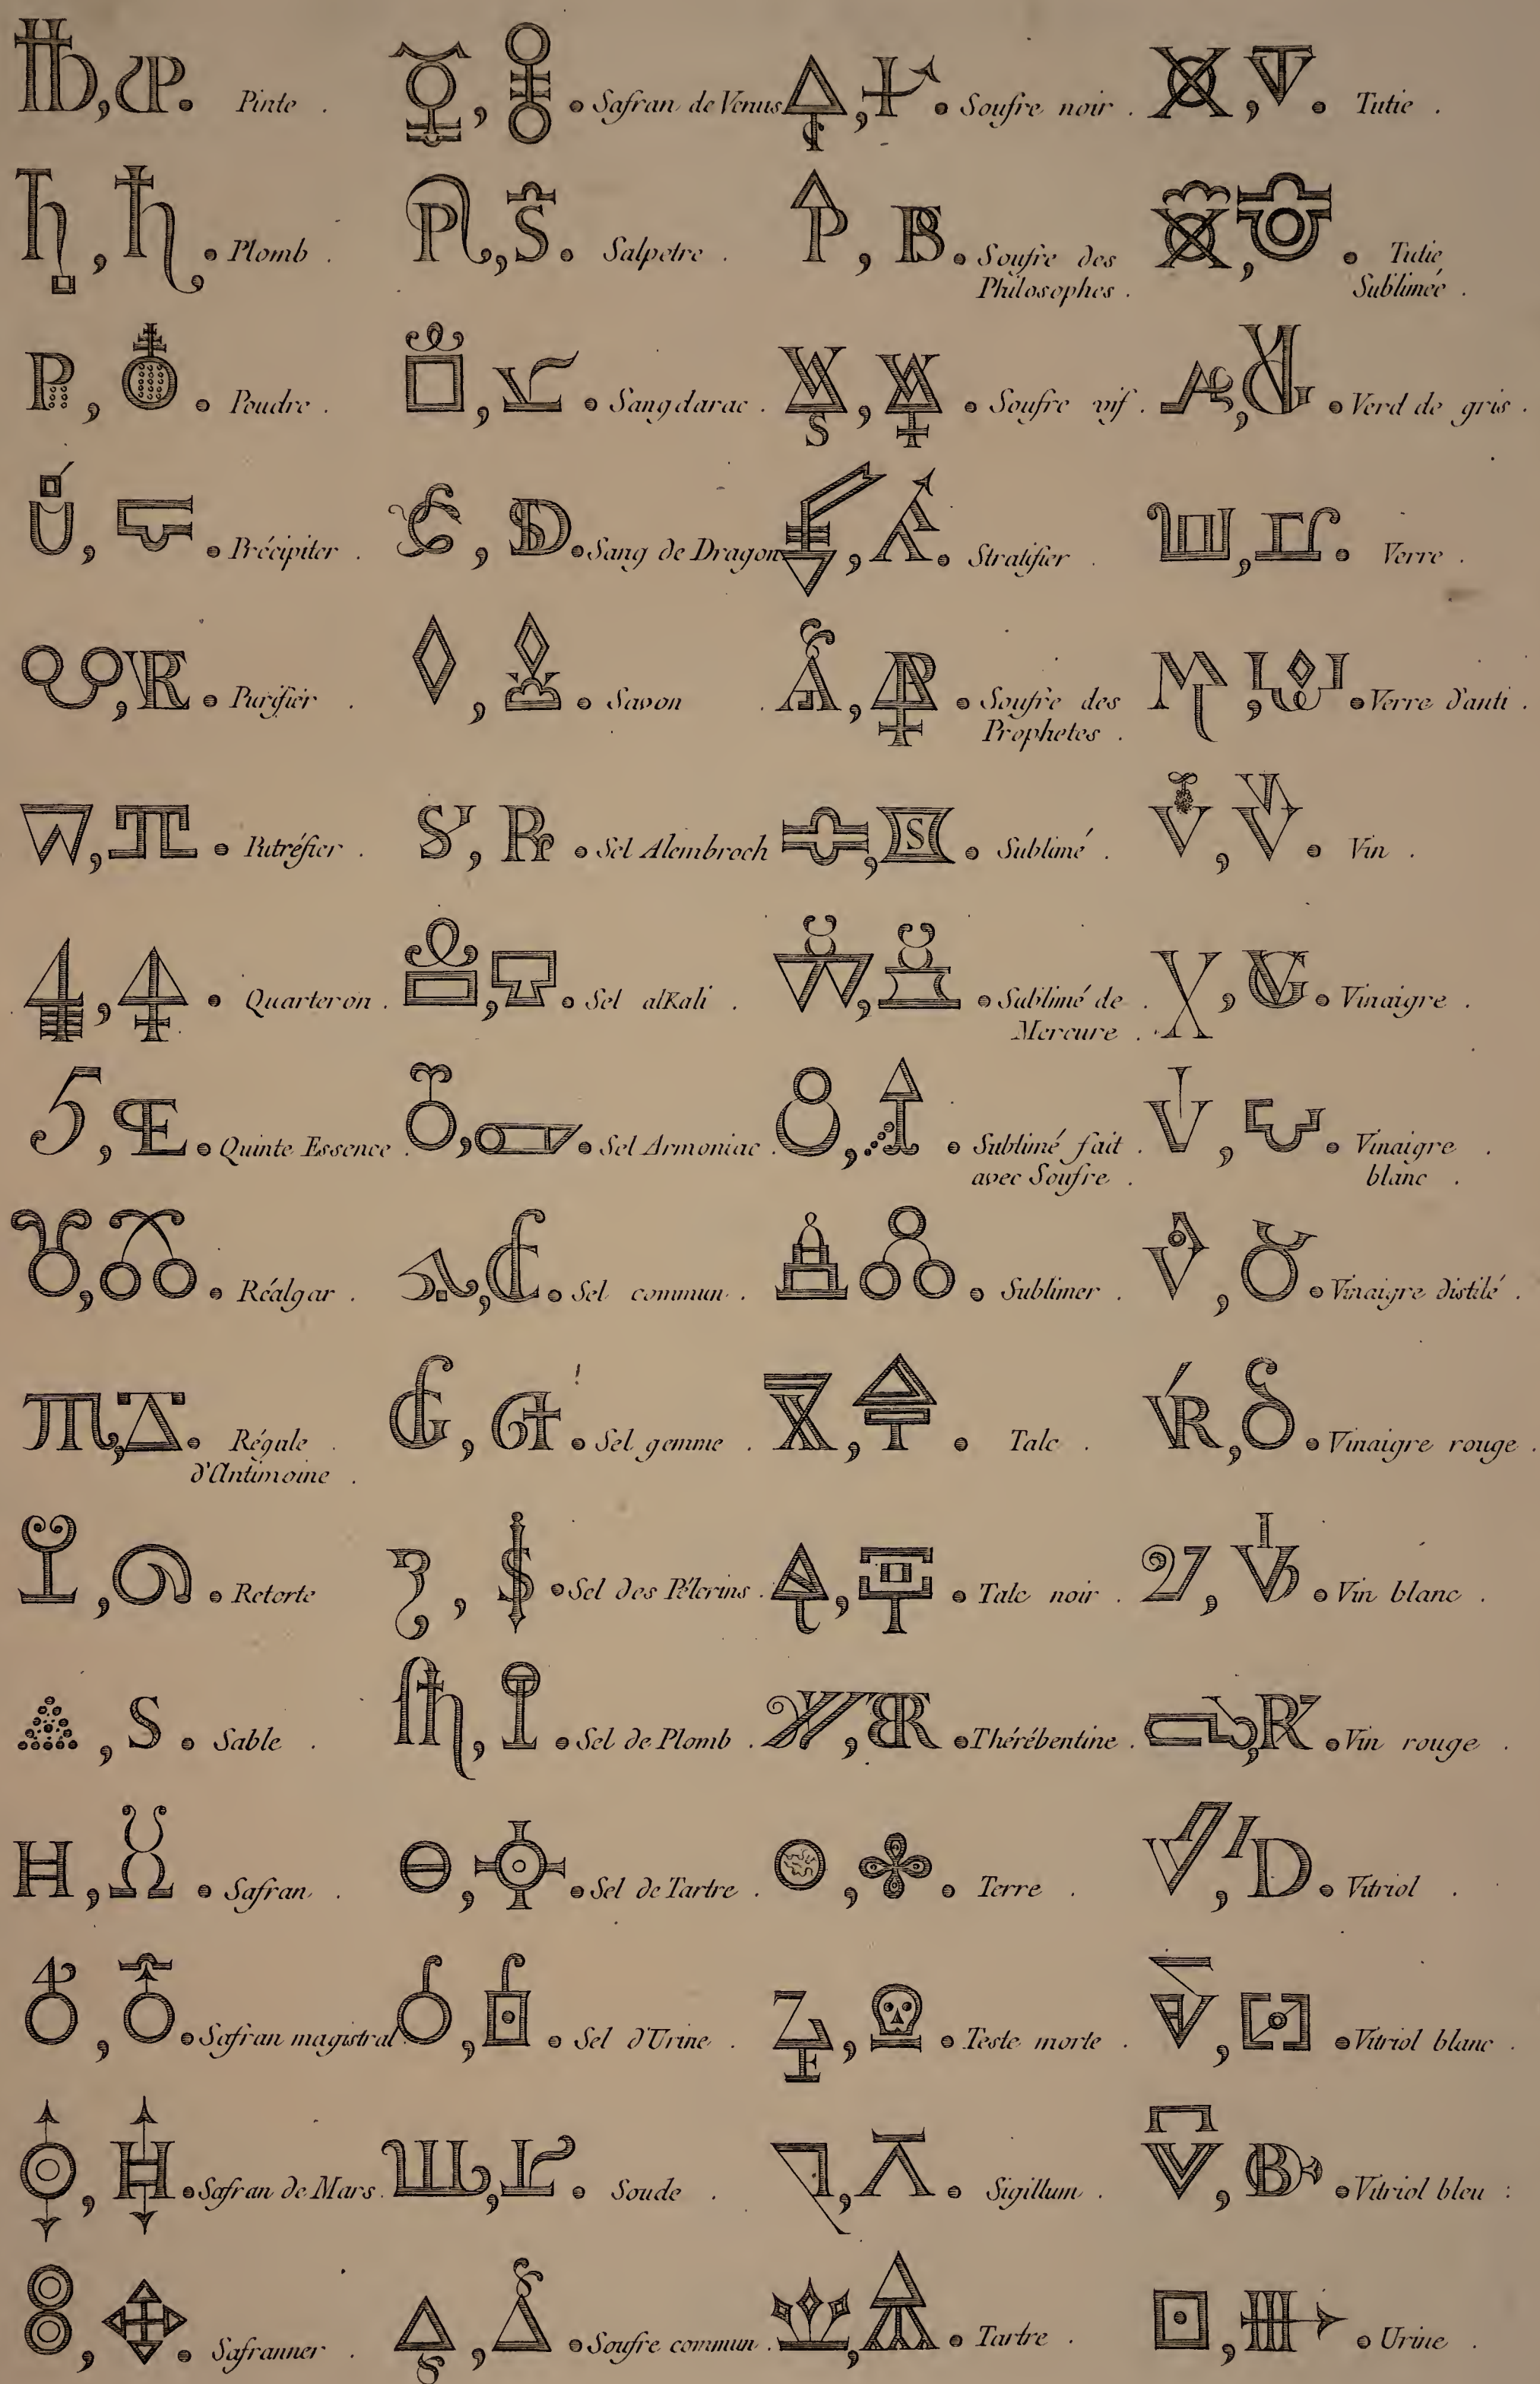 Pinte .
Plomb .
Poudre .
Précipiter .
Purifier .
Putréfier .
Quarteron .
Quinte Essence .
Réalgar .
Régule .
d'Antimoine .
Retorte
Sable .
Safran .
Safran magistral .
Safran de Mars .
Safranner .
Safran de Venus
Salpetre .
Sang darac .
Sang de Dragon
Savon
Sel Alembroch
Sel alKali .
Sel Armoniac .
Sel commun .
Sel gemme .
Sel des Pélerins .
Sel de Plomb .
Sel de Tartre .
Sel d'Urine .
Soude .
Soufre commun .
Soufre noir .
Soufre des
Philosophes .
Soufre vif .
Stratifier .
Soufre des
Prophetes .
Sublimé .
Sublimé de
Mercure .
Sublimé fait
avec Soufre .
Sublimer .
Talc .
Talc noir .
Thérébentine .
Terre .
Teste morte .
Sigillum .
Tartre .
Tutie .
Tutie
Sublimée .
Verd de gris .
Verre .
Verre d'anti .
Vin .
Vinaigre .
Vinaigre .
blanc .
Vinaigre distilé .
Vinaigre rouge .
Vin blanc .
Vin rouge .
Vitriol .
Vitriol blanc .
Vitriol bleu :
Urine .